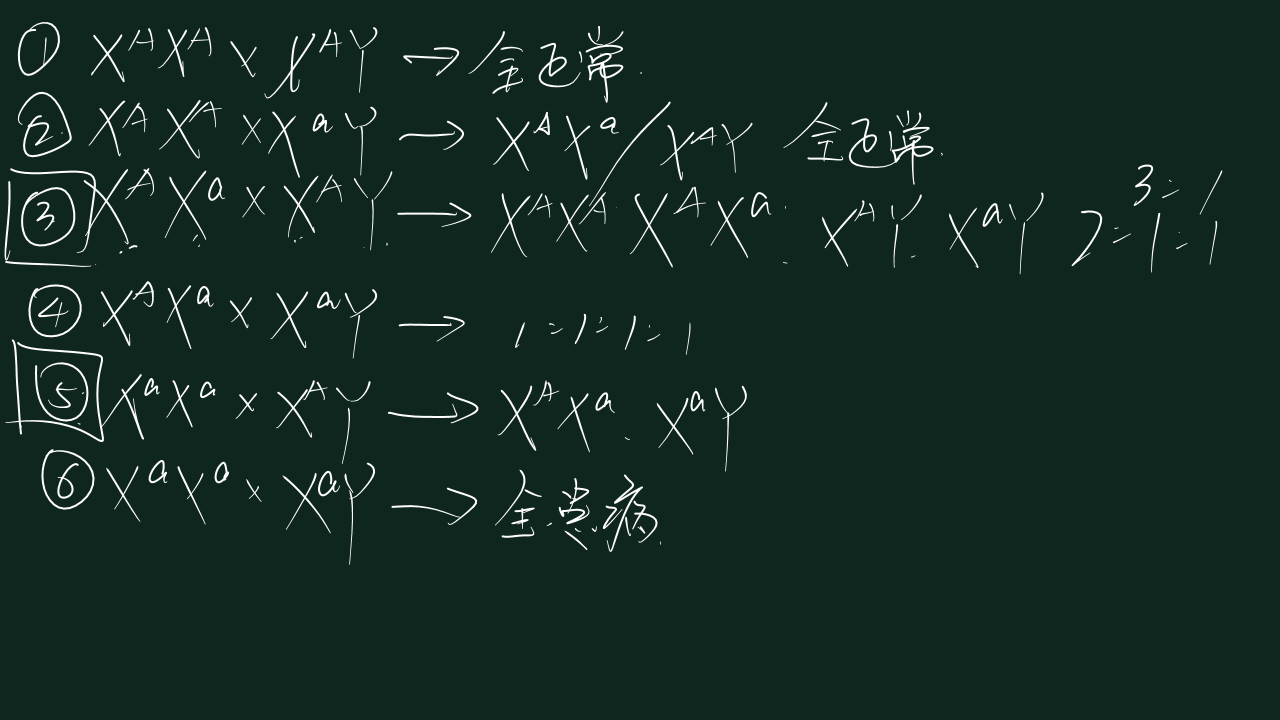 ① XᴬXᴬ × XᴬY → 全正常.
② XᴬXᴬ × XᵃY → XᴬXᵃ / XᴬY 全正常.
③ XᴬXᵃ × XᴬY → XᴬXᴬ. XᴬXᵃ. XᴬY. XᵃY 3:1 2:1:1
④ XᴬXᵃ × XᵃY → 1:1:1:1
⑤ XᵃXᵃ × XᴬY → XᴬXᵃ. XᵃY
⑥ XᵃXᵃ × XᵃY → 全患病.